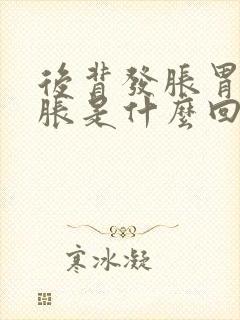 後背發脹胃
脹是什麼回
寒冰凝